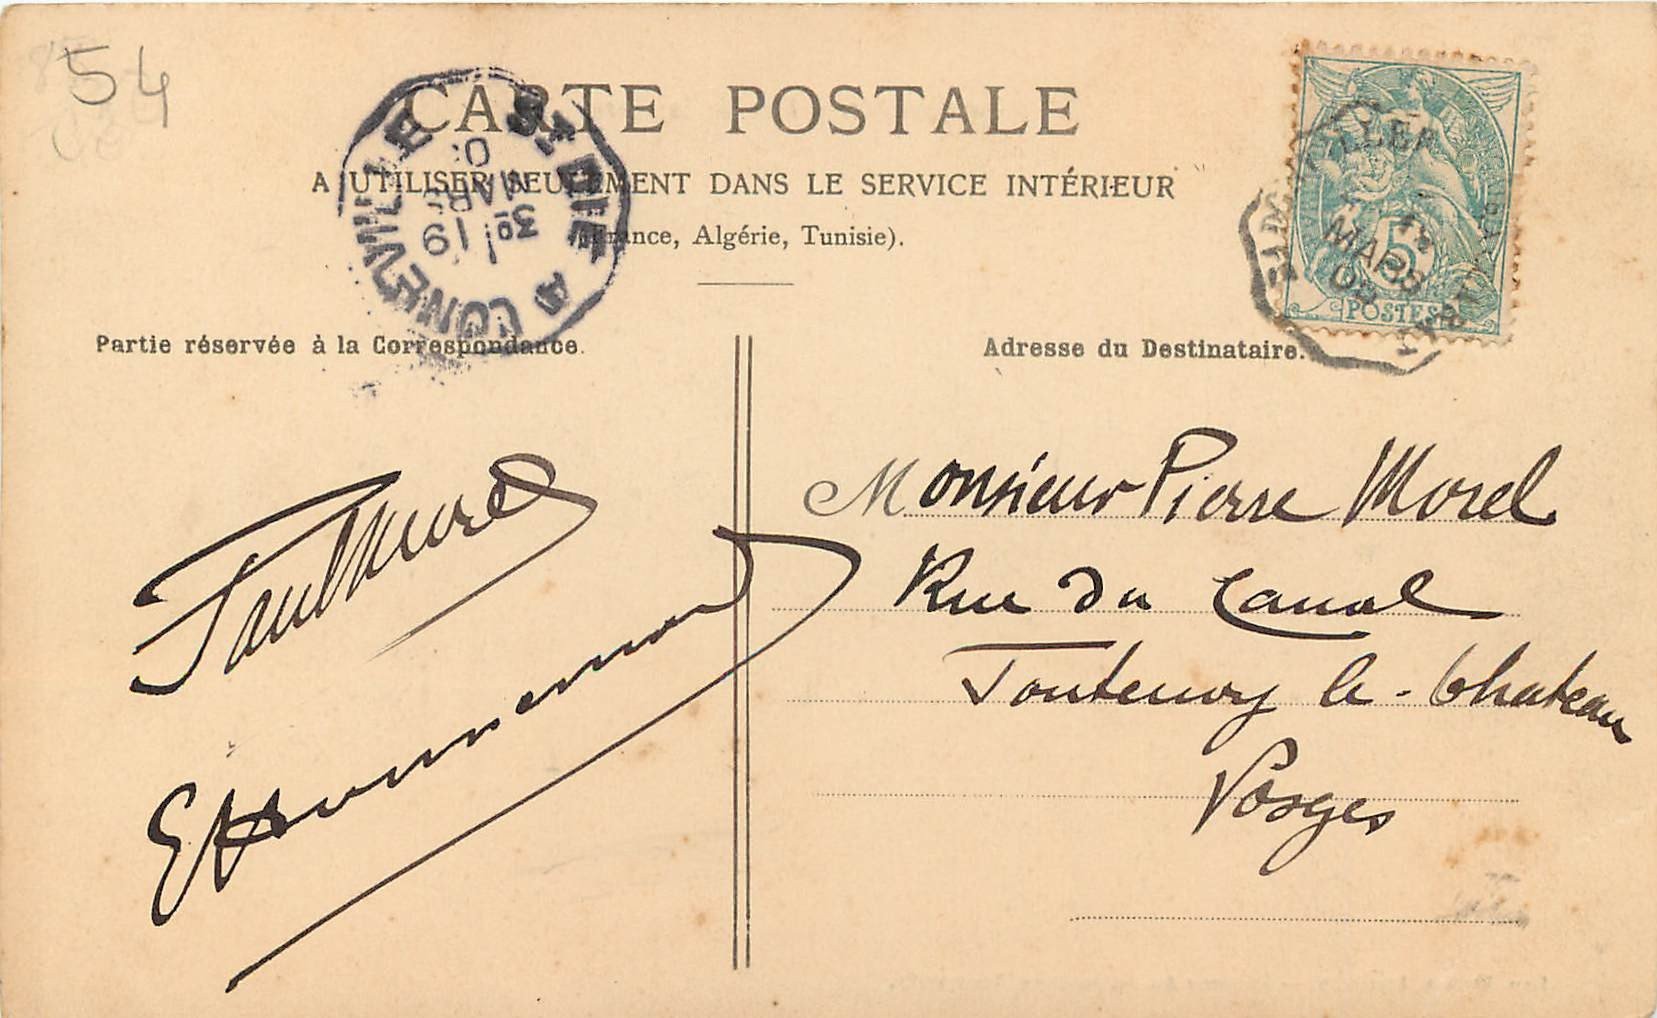 54
CARTE POSTALE
A UTILISER SEULEMENT DANS LE SERVICE INTÉRIEUR
(France, Algérie, Tunisie).
Partie réservée à la Correspondance.
Adresse du Destinataire.
5
POSTES
MARS
MARS
19
3º
A LONGEVILLE
Paul Morel
Monsieur Pierre Morel
Rue du Canal
Fontenoy le-Chateau
Vosges